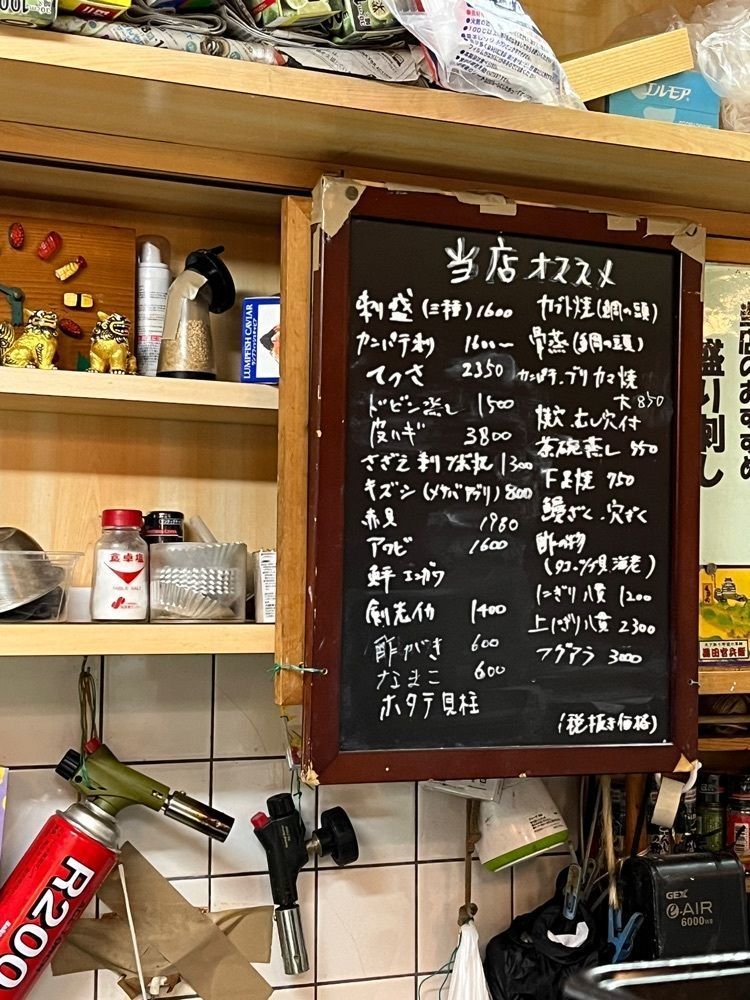 エルモア
LUMPFISH CAVIAR
ランプフィッシュキャビア
食卓塩
TABLE SALT
当店オススメ
刺盛(三種)1600
カンパチ刺 1600〜
てっさ 2350
ドビン蒸し 1500
皮ハギ 3800
さざえ 刺 つぼ丸 1300
キズシ(メサバ) 800
赤貝 1980
アワビ 1600
鮃 エンガワ
剣先イカ 1400
酢がき 600
なまこ 600
ホタテ貝柱
カブト焼(鯛の頭)
骨蒸(鯛の頭)
カンパチ・ブリカマ焼
大850
焼穴、むし穴付
茶碗蒸し 550
下足焼 750
鰻ざく、穴ざく
酢の物
(タコ・ツブ貝 海老)
にぎり八貫 1200
上にぎり八貫 2300
フグアラ 3000
(税抜き価格)
当店のおすすめ
盛り刺し
黒田官兵衛
R200
GEX
e-AIR
6000WB